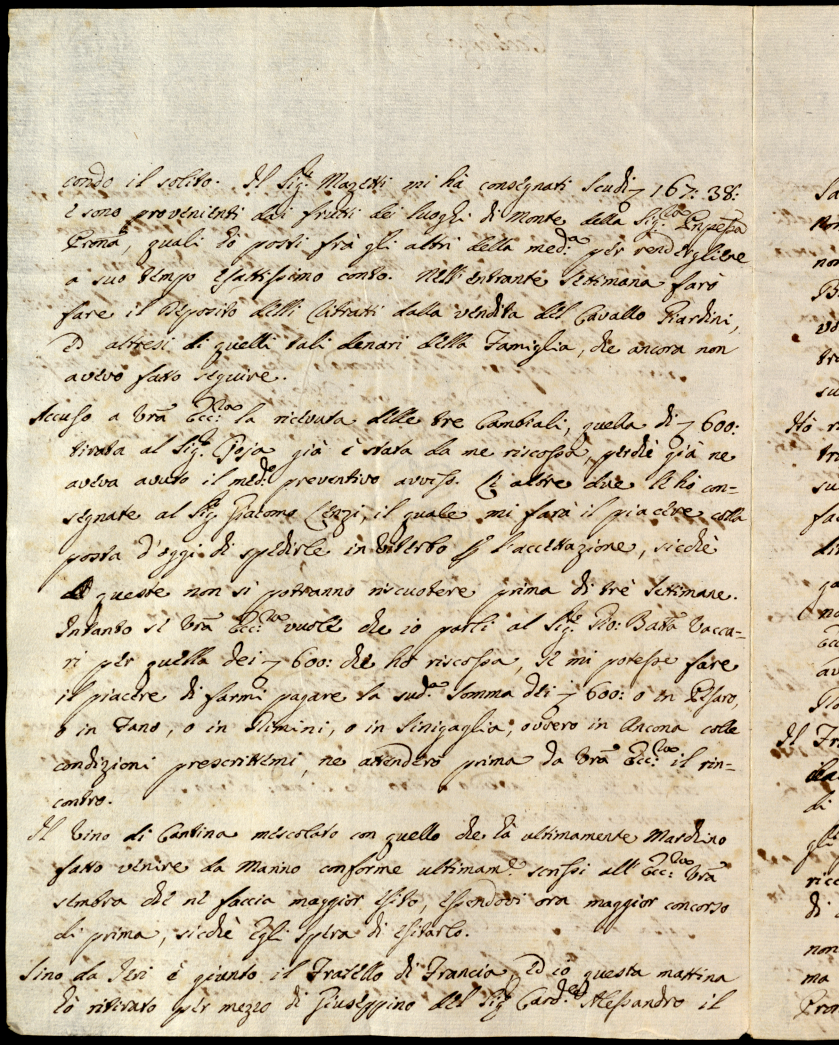 condo il solito. Il Sig.r Mazetti mi hà consegnati Scudi 167:38:
e sono provenienti dai frutti dei luoghi di Monte della Sig.ra
Prona, quali hò posti frà gli altri della med.a per rendergliene
a suo tempo esattissimo conto. Nell'entrante Settimana farò
fare il Deposito delli ritratti dalla vendita del Cavallo Giardini,
ed altresì di quelli tali denari della Famiglia, che ancora non
avevo fatto seguire.
Accuso a Vrã Ecc.za la ricevuta delle tre Cambiali, quella di 600:
tirata al Sig.r Gioja già è stata da me riscossa, perchè già ne
aveva avuto il med.o preventivo avviso. Le altre due le hò con=
segnate al Sig.r Giacomo Lenzi, il quale mi farà il piacere colla
posta d'oggi di spedirle in Viterbo p l'accettazione, sicchè
queste non si potranno riscuotere prima di trè Settimane.
Intanto se Vrã Ecc.za vuole che io parli al Sig.r Gio: Batta Vacca=
ri per quella dei 600: che hò riscossa, se mi potesse fare
il piacere di farmi pagare la sud.a Somma dei 600: o in Pesaro,
o in Fano, o in Rimini, o in Sinigaglia, ovvero in Ancona colle
condizioni prescrittemi, ne attenderò prima da Vrã Ecc.za il rin=
contro.
Il Vino di Cantina mescolato con quello che hà ultimamente Marchino
fatto venire da Marino conforme ultimam.e scrissi all'Ecc.za Vrã
sembra che ne faccia maggior esito, essendovi ora maggior concorso
di prima, sicchè Egli spera di esitarlo.
Sino da Ieri è giunto il Fratello di Francia, ed io questa mattina
hò ritirato per mezzo di Giuseppino del Sig.r Card.le Alessandro il